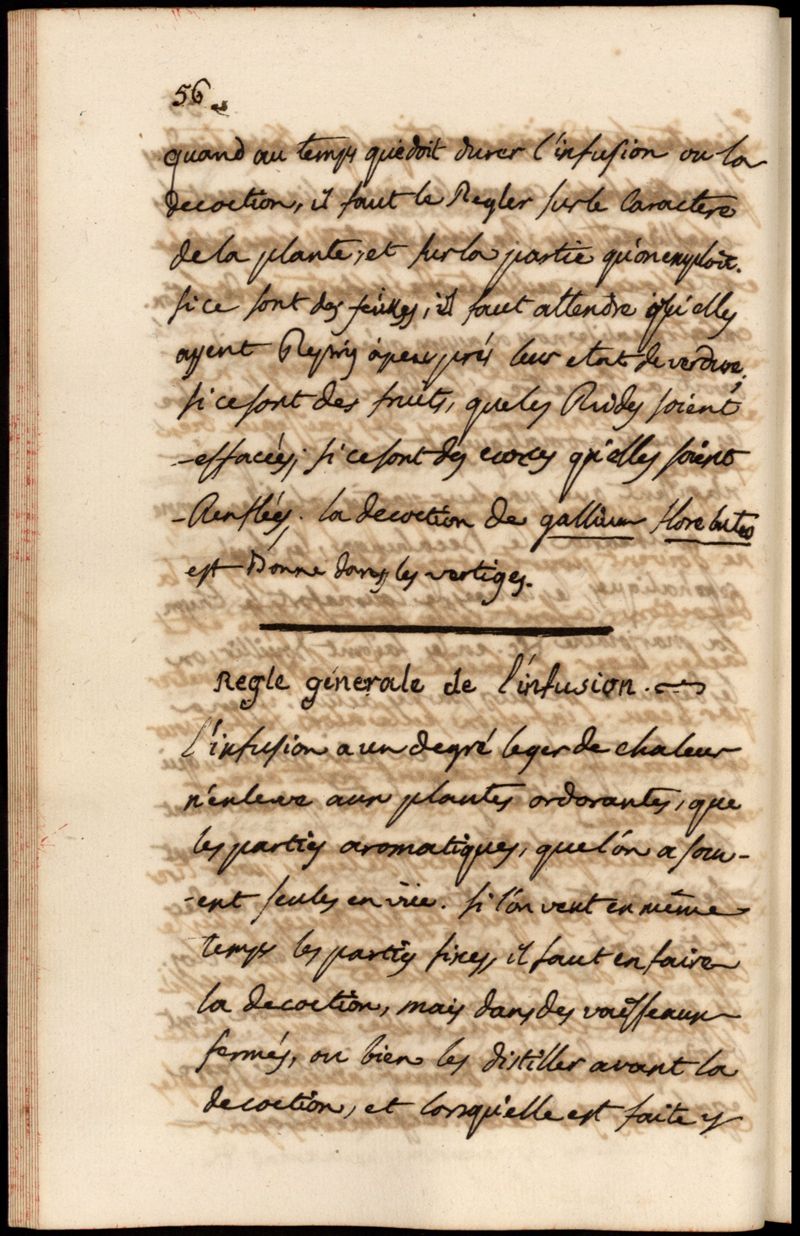 56
quand au temps que doit durer l'infusion ou la
decoction, il faut le Regler sur le Caractere
de la plante, et sur la partie qu'on employe.
si ce sont des feüilles, il faut attendre qu'elles
ayent Repris àpeu près leur etat de verdure;
si ce sont des fruits, que les Rides soient
effacées; si ce sont des ecorces qu'elles soient
Renflées. la decoction de gallium flore luteo
est Donne dans les vertiges.
Regle génerale de l'infusion.
l'infusion a un degré leger de chaleur
n'enleve aux plantes ordorantes, que
les parties aromatiques, que l'on a souv-
-ent seules en vüe. si l'on veut en même
temps les parties fixes, il faut en faire
la decoction, mais dans des vaisseaux
fermés, ou bien les distiller avant la
decoction, et lorsqu'elle est faite y